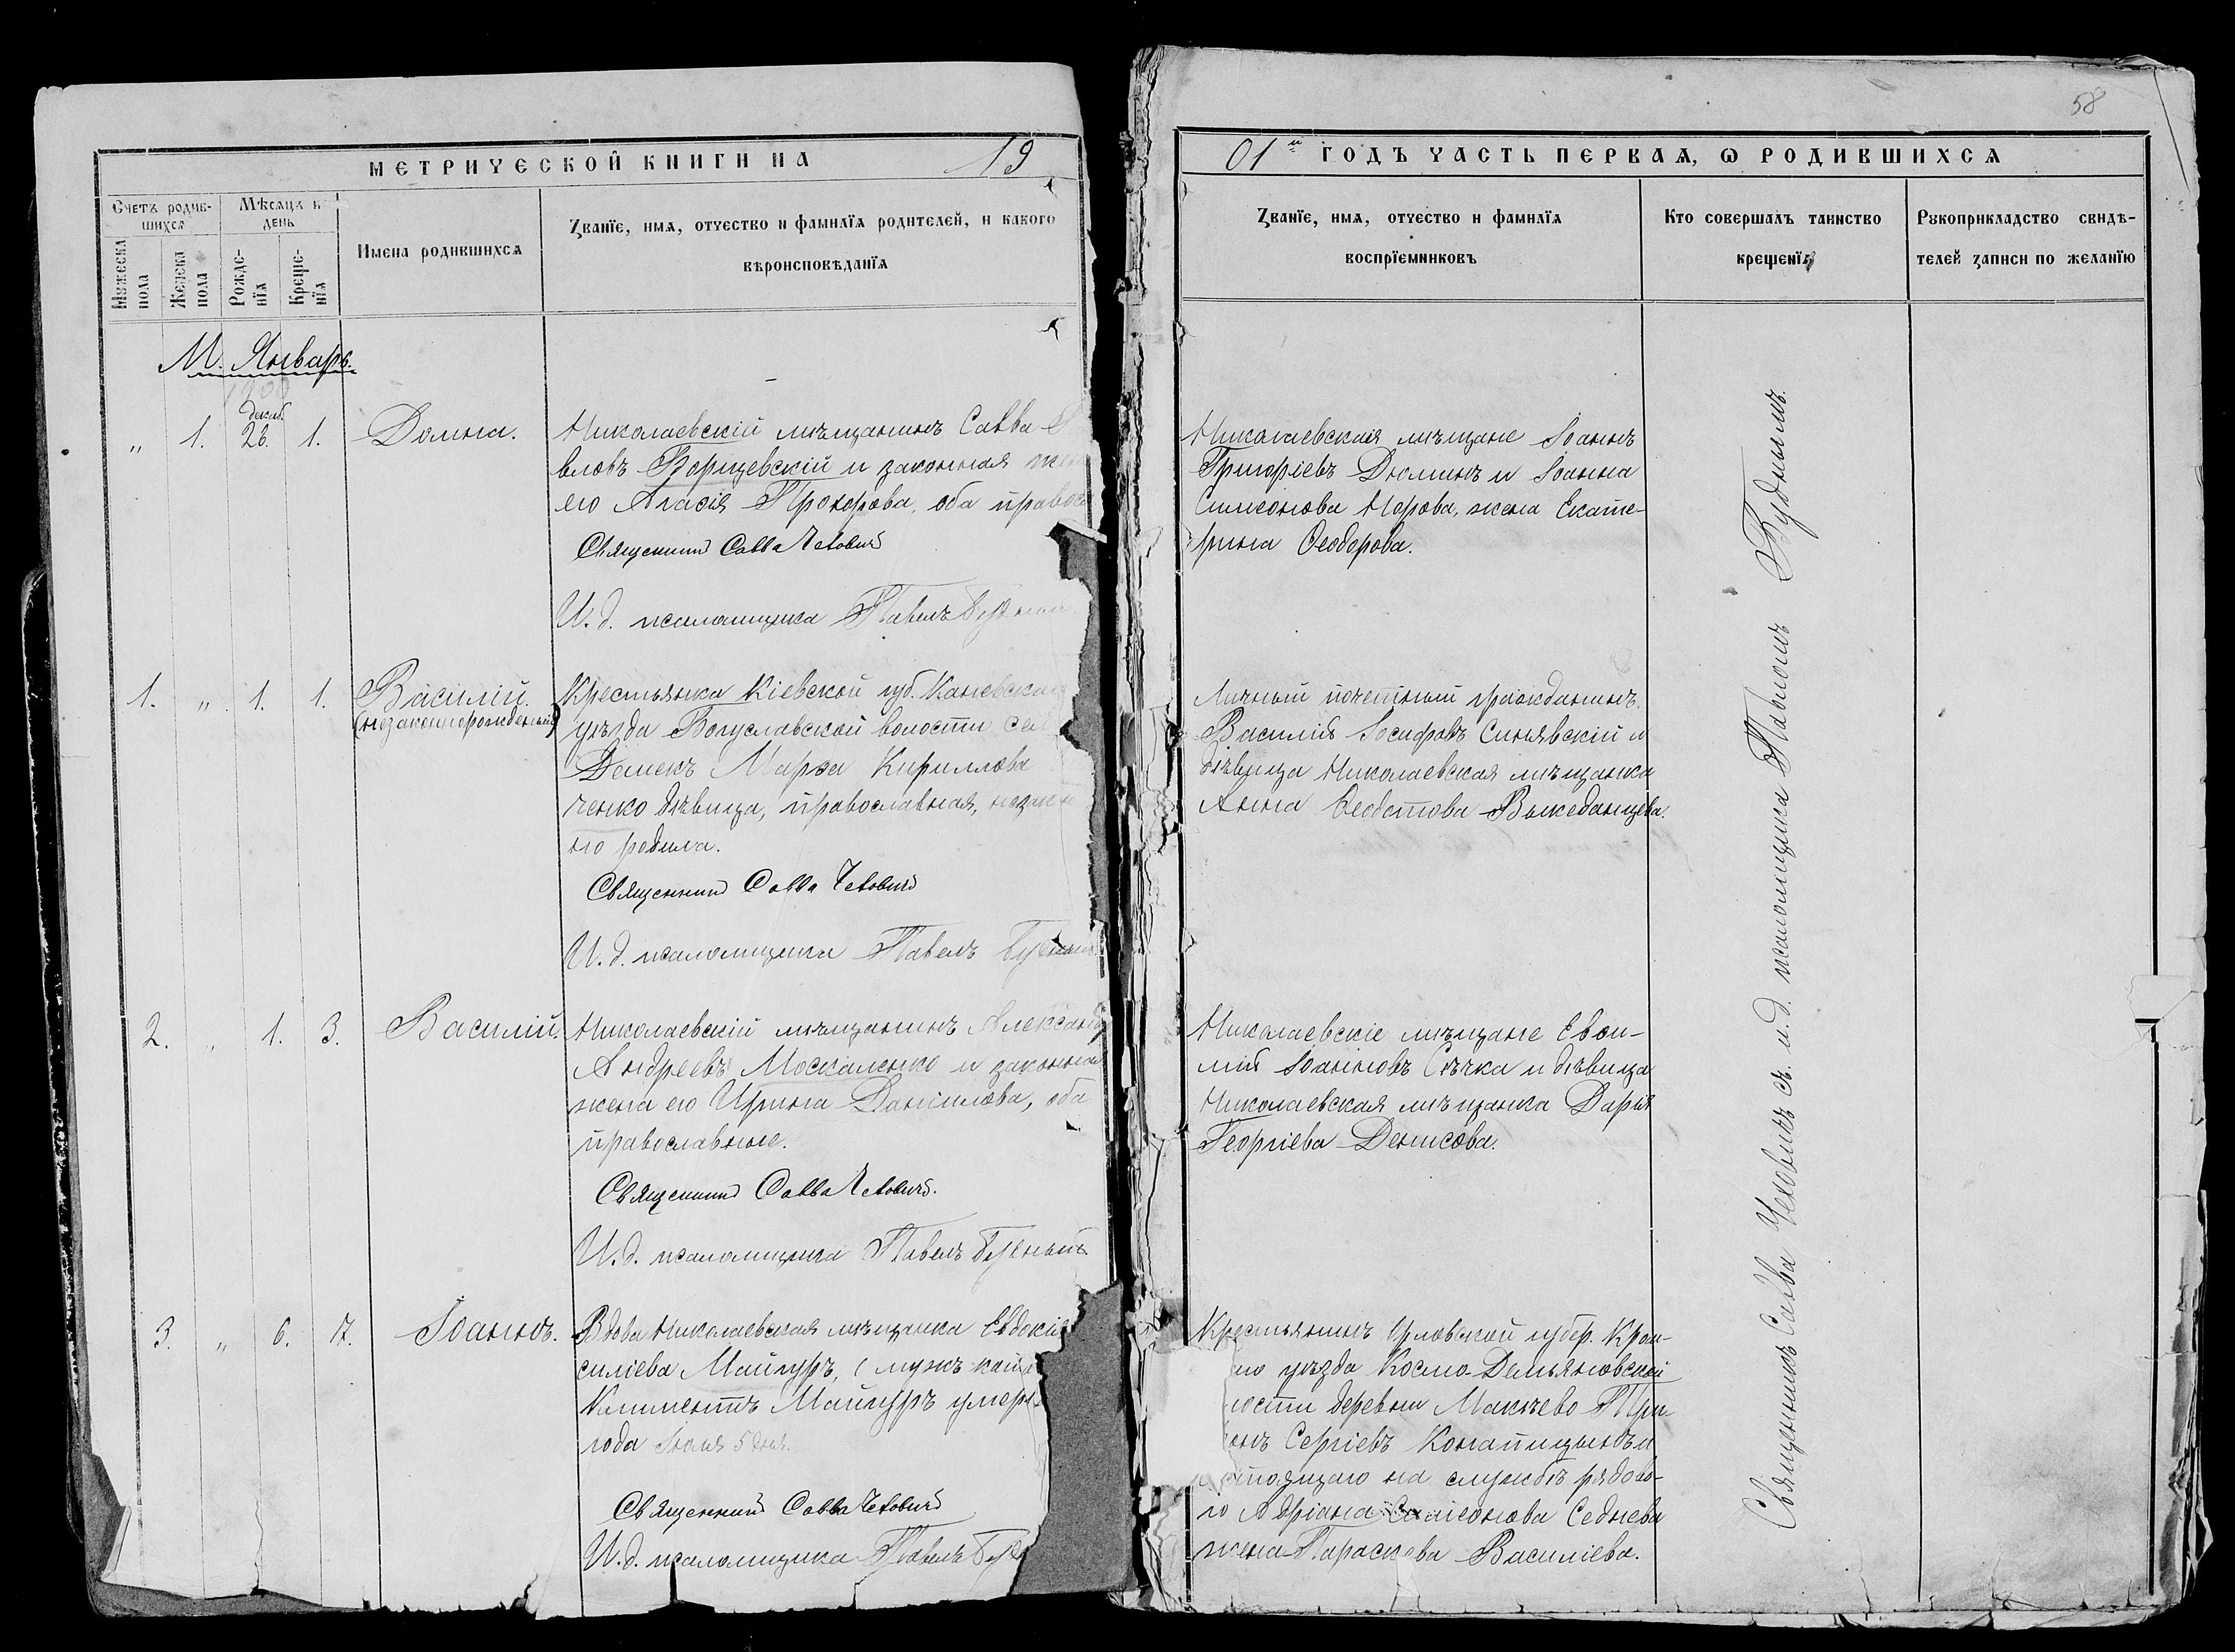 58
МЕТРИЧЕСКОЙ КНИГИ НА 19
01й ГОДЪ ЧАСТЬ ПЕРВАѦ, Ѡ РОДИВШИХСѦ
Счетъ родив-
шихсѧ
Мѣсѧцъ и
день
Мꙋжеска
пола
Женска
пола
Рожде-
нїѧ
Креще-
нїѧ
Имена родившихсѧ
Званїе, имѧ, отчество и фамилїѧ родителей, и какого
вѣроисповѣданїѧ
Званїе, имѧ, отчество и фамилїѧ
воспрїемниковъ
Кто совершалъ таинство
крещенїѧ
Рꙋкоприкладство свидѣ-
телей записи по желанїю
М. Январь.
1900
декаб.
„ 1. 26. 1. Домна.
Николаевскій мѣщанинъ Савва
вловъ Борщевскій и законная жен
его Агаѳія Прохорова, оба правос
Священникъ Савва Чеховичъ
И. д. псаломщика Павелъ
Николаевскія мѣщане Іоаннъ
Григоріевъ Дюминъ и Іоанна
Симеонова Норова, жена Екате-
рина Ѳеодорова.
1. „ 1. 1. Василій.
(незаконнорожденный)
Крестьянка Кіевской губ. Каневска
уѣзда Богуславской волости се
Демекъ Марѳа Кириллова
ченко дѣвица, православная, незак
но родила.
Священникъ Савва Чеховичъ
И. д. псаломщика Павелъ
Личный почетный гражданинъ
Василій Іосифовъ Синявскій и
дѣвица Николаевская мѣщанка
Анна Ѳеодотова Выжеданцева.
2. „ 1. 3. Василій.
Николаевскій мѣщанинъ Алексан
Андреевъ Москаленко и законная
жена его Ирина Даніилова, оба
православные.
Священникъ Савва Чеховичъ.
И. д. псаломщика Павелъ Будный
Николаевскіе мѣщане Евѳи-
мій Іоанновъ Сѣчка и дѣвица
Николаевская мѣщанка Дарія
Георгіева Денисова.
3. „ 6. 17. Іоаннъ.
Вдова Николаевская мѣщанка Евдокія
силіева Майгуръ, (мужъ коей
Климентъ Майгуръ умеръ
года Іюля 5 дня.
Священникъ Савва Чеховичъ
И. д. псаломщика Павелъ
Крестьянинъ Орловской губер. Кром-
го уѣзда Космо-Демьяновской
лости деревни Макѣево
Сергіевъ и
стоящаго на службѣ рядово-
го Адріана Симеонова Седнева
жена Параскева Василіева.
Священникъ Савва Чеховичъ съ и. д. псаломщика Павломъ Буднымъ.